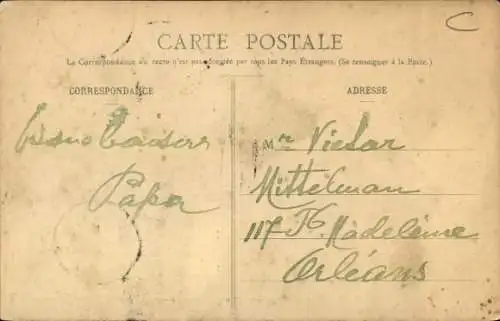 C
CARTE POSTALE
La Correspondance au recto n'est pas acceptée par tous les Pays Étrangers. (Se renseigner à la Poste.)
CORRESPONDANCE
ADRESSE
Baisers
Papa
Mr Victor
Mittelman
117 Fg Madeleine
Orléans